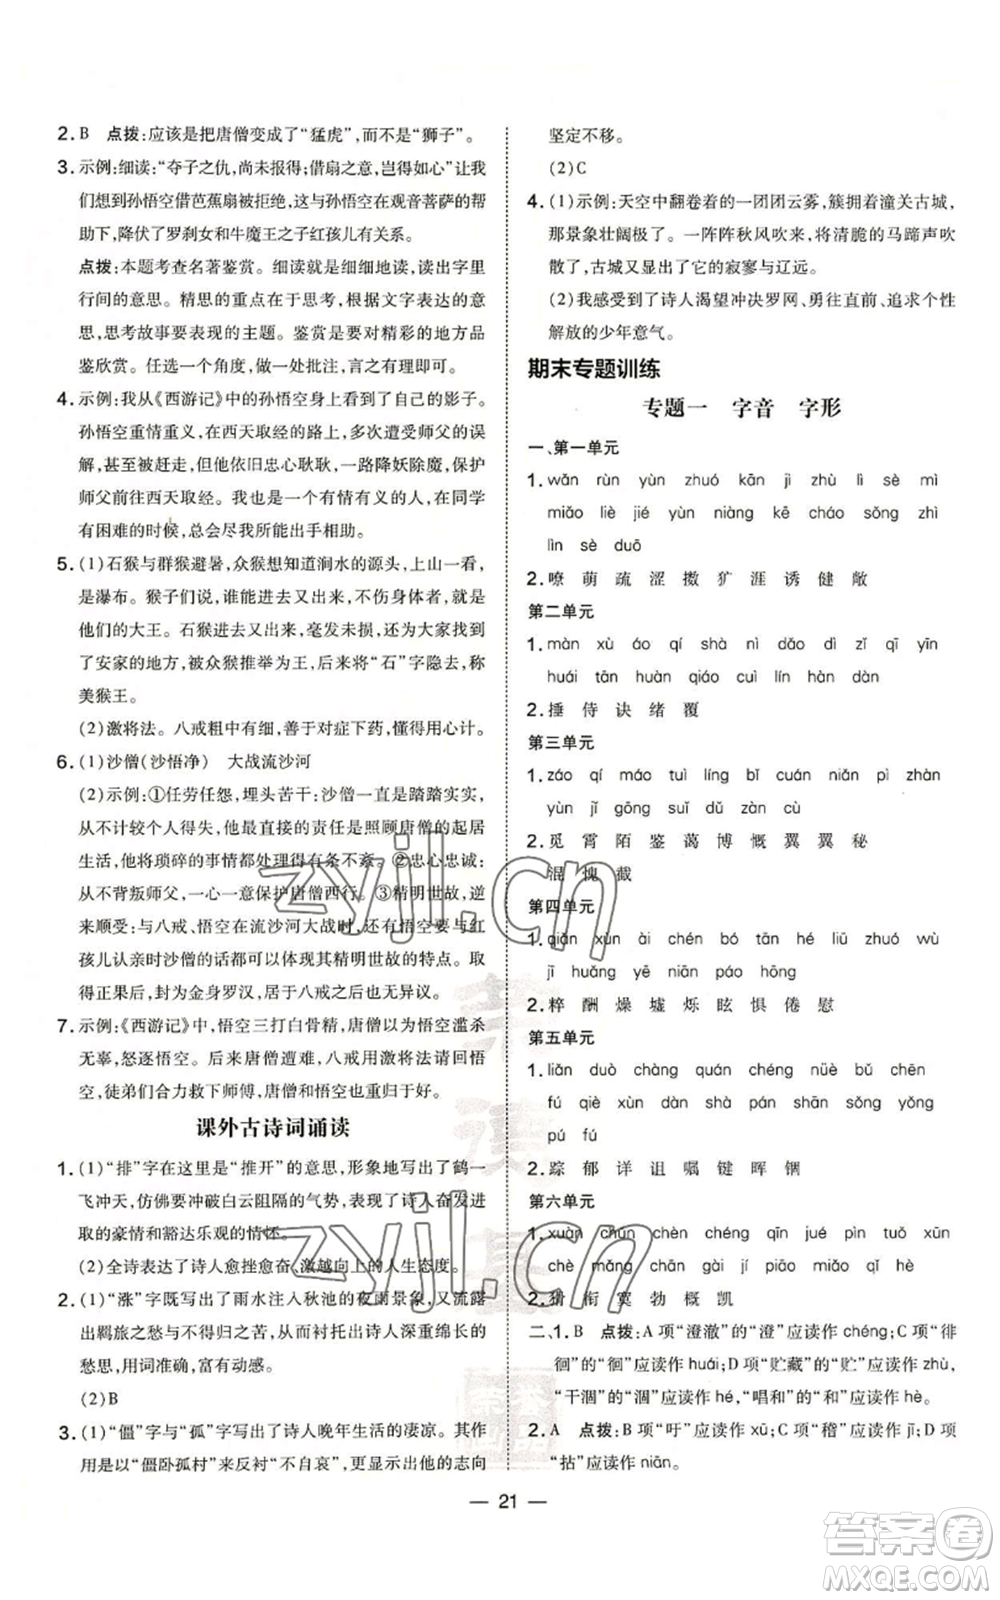 2. B　点拨:应该是把唐僧变成了“猛虎”,而不是“狮子”。
3. 示例:细读:“夺子之仇,尚未报得;借扇之意,岂得如心”让我
们想到孙悟空借芭蕉扇被拒绝,这与孙悟空在观音菩萨的帮
助下,降伏了罗刹女和牛魔王之子红孩儿有关系。
点拨:本题考查名著鉴赏。细读就是细细地读,读出字里
行间的意思。精思的重点在于思考,根据文字表达的意
思,思考故事要表现的主题。鉴赏是要对精彩的地方品
鉴欣赏。任选一个角度,做一处批注,言之有理即可。
4. 示例:我从《西游记》中的孙悟空身上看到了自己的影子。
孙悟空重情重义,在西天取经的路上,多次受师父的误
解,甚至被赶走,但他依旧忠心耿耿,一路降妖除魔,保护
师父前往西天取经。我也是一个有情有义的人,在同学
有困难的时候,总会尽我所能出手相助。
5. (1)石猴与群猴避暑,众猴想知道涧水的源头,上山一看,
是瀑布。猴子们说,谁能进去又出来,不伤身体,就拜为
他们的大王。石猴进去又出来,毫发未损,并找到了大家
了安家的地方,被众猴推举为王,将“石”字隐去,称
美猴王。
(2)激将法。八戒粗中有细,善于对症下药,懂得用心计。
6. (1)沙僧(沙悟净)　大战流沙河
(2)示例:①任劳任怨,埋头苦干:沙僧是踏踏实实,
从不计较个人得失,他最主要的责任是照顾唐僧的起居
生活,他将琐碎的事情都处理得有条不紊。②忠心忠诚:
从不背叛师父,一心一意保护唐僧西行。③精明世故,逆
来顺受:与八戒、悟空在流沙河大战时,以及悟空与红
孩儿认亲时沙僧的话都可以体现其精明世故的特点。取
得正果后,封为金身罗汉,居于八戒之后也无异议。
7. 示例:《西游记》中,悟空三打白骨精,唐僧以悟空滥杀
无辜,怒逐悟空。后来唐僧遭难,八戒用激将法请回悟
空,徒弟们合力救下师傅,唐僧和悟空也重归于好。
课外古诗词诵读
1. (1)“排”字在这里是“推开”的意思,形象地写出了鹤一
飞冲天,仿佛要冲破白云阻隔的气势,表现了诗人奋发进
取的豪情和豁达乐观的情怀。
(2)全诗表达了诗人愈挫愈奋、激越向上的人生态度。
2. (1)“涨”字既写出了雨水注入秋池的夜雨景象,又流露
出羁旅之愁与归期未卜之苦,从而衬托出诗人深重绵长的
愁思,用词准确,富有动感。
(2)B
3. (1)“僵”字与“孤”字写出了诗人晚年生活的凄凉。其作
用是以“僵卧孤村”来反衬“不自哀”,更显示出他的志向
坚定不移。
(2)C
4. (1)示例:天空中翻卷着的一团团云雾,簇拥着潼关古城,
那景象壮阔极了。一阵阵秋风吹来,将清脆的马蹄声吹
散了,古城又陷入到它的寂寥与辽远。
(2)我感受到了诗人渴望冲决罗网、勇往直前、追求个性
解放的少年意气。
期末专题训练
专题一　字音　字形
一、第一单元
1. wǎn rùn yùn zhuó kān jì zhù lì sè mì
miǎo liè jié yùn niàng kē cháo sǒng zhì
lìn sè duō
2. 嘹 萌 疏 涩 擞 犷 涯 诱 健 敞
第二单元
1. màn xù áo qí shà nì dǎo dì zǐ qī yīn
huái tān huàn yuán qiè cuì lín hàn dàn
2. 捶 侍 诀 绪 覆
第三单元
1. záo qí máo tuì líng bǐ cuán niǎn pì zhàn
yùn jǐ gōng suí dǔ zàn cù
2. 觅 霄 陌 鉴 蔼 博 慨 翼 翼 秘
混 愧 截
第四单元
1. qiǎn xùn ài chén bó tān hé liū zhuó wù
jī huǎng yē niān pā téng
2. 粹 酬 燥 墟 烁 眩 惧 倦 慰
第五单元
1. liǎn duò chàng quán chéng pèi bēn nù zèng
fú qiè xuàn sǒng liáng zhé sǒng yǒng
pú fú
2. 踪 郁 详 诅 嘱 键 晖 锢
第六单元
1. xuàn chuò chèn chéng qīn jué pìn tuǒ xūn
chè mǎng chán gài jí piǎo xián hè
2. 猾 衔 冥 勃 概 凯
二、1. B　点拨:A 项“澄澈”的“澄”应读作 chéng;C 项“徘
徊”的“徊”应读作 huái;D 项“贮藏”的“贮”应读作 zhù,
“干涸”的“涸”应读作 hé,“唱和”的“和”应读作 hè。
2. A　点拨:B 项“吁”应读作 xū;C 项“稽”应读作 jī;D 项
“拈”应读作 niān。
— 21 —
zyjl.cn
zyjl.cn
答案圈
MXQE.COM